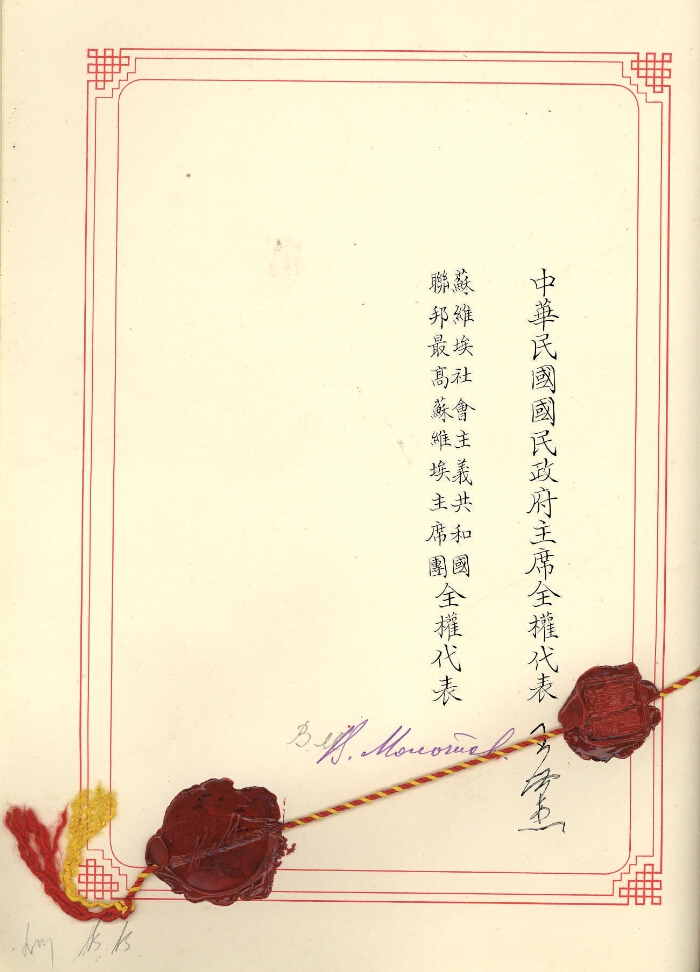 中華民國國民政府主席全權代表
王世杰
蘇維埃社會主義共和國
聯邦最高蘇維埃主席團全權代表
В. Молотов.